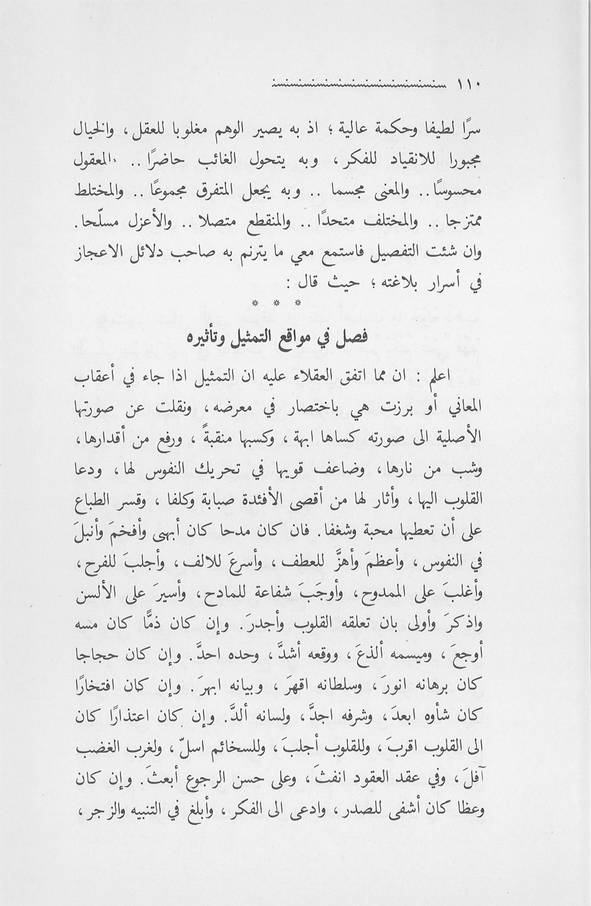 ١١٠
سرًا لطيفا وحكمة عالية ؛ اذ به يصير الوهم مغلوبا للعقل ، والخيال
مجبورا للانقياد للفكر ، وبه يتحول الغائب حاضرًا .. المعقول
محسوسًا .. والمعنى مجسما .. وبه يجعل المتفرق مجموعًا .. والمختلط
ممتزجا .. والمختلف متحدًا .. والمنقطع متصلا .. والأعزل مسلّحا.
وان شئت التفصيل فاستمع معي ما يترنم به صاحب دلائل الاعجاز
في أسرار بلاغته ؛ حيث قال :
* * *
فصل في مواقع التمثيل وتأثيره
اعلم : ان مما اتفق العقلاء عليه ان التمثيل اذا جاء في أعقاب
المعاني أو برزت هي باختصار في معرضه ، ونقلت عن صورتها
الأصلية الى صورته كساها ابهة ، وكسبها منقبةً ، ورفع من أقدارها،
وشب من نارها، وضاعف قويها في تحريك النفوس لها، ودعا
القلوب اليها ، وأثار لها من أقصى الأفئدة صبابة وكلفا ، وقسر الطباع
على أن تعطيها محبة وشغفا. فان كان مدحا كان أبهى وأفخمَ وأنبلَ
في النفوس ، وأعظمَ وأهزَّ للعطف ، وأسرعَ للالف ، وأجلبَ للفرح ،
وأغلبَ على الممدوح ، وأوجَبَ شفاعة للمادح ، وأسيرَ على الألسن
واذكرَ وأولى بان تعلقه القلوب وأجدرَ. وإن كان ذمًّا كان مسه
أوجعَ ، وميسمه ألذعَ ، ووقعه أشدَّ ، وحده احدَّ. وإن كان حجاجا
كان برهانه انورَ ، وسلطانه اقهرَ ، وبيانه ابهرَ. وإن كان افتخارًا
كان شأوه ابعدَ ، وشرفه اجدَّ ، ولسانه ألدَّ. وإن كان اعتذارًا كان
الى القلوب اقربَ ، وللقلوب أجلبَ ، وللسخائم اسلّ ، ولغرب الغضب
آفلَ ، وفي عقد العقود انفثَ ، وعلى حسن الرجوع أبعثَ. وإن كان
وعظا كان أشفى للصدر ، وادعى الى الفكر ، وأبلغ في التنبيه والزجر ،